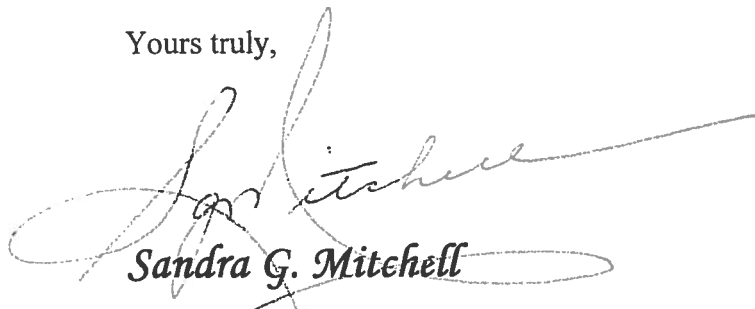 Yours truly,
SgMitchell
Sandra G. Mitchell